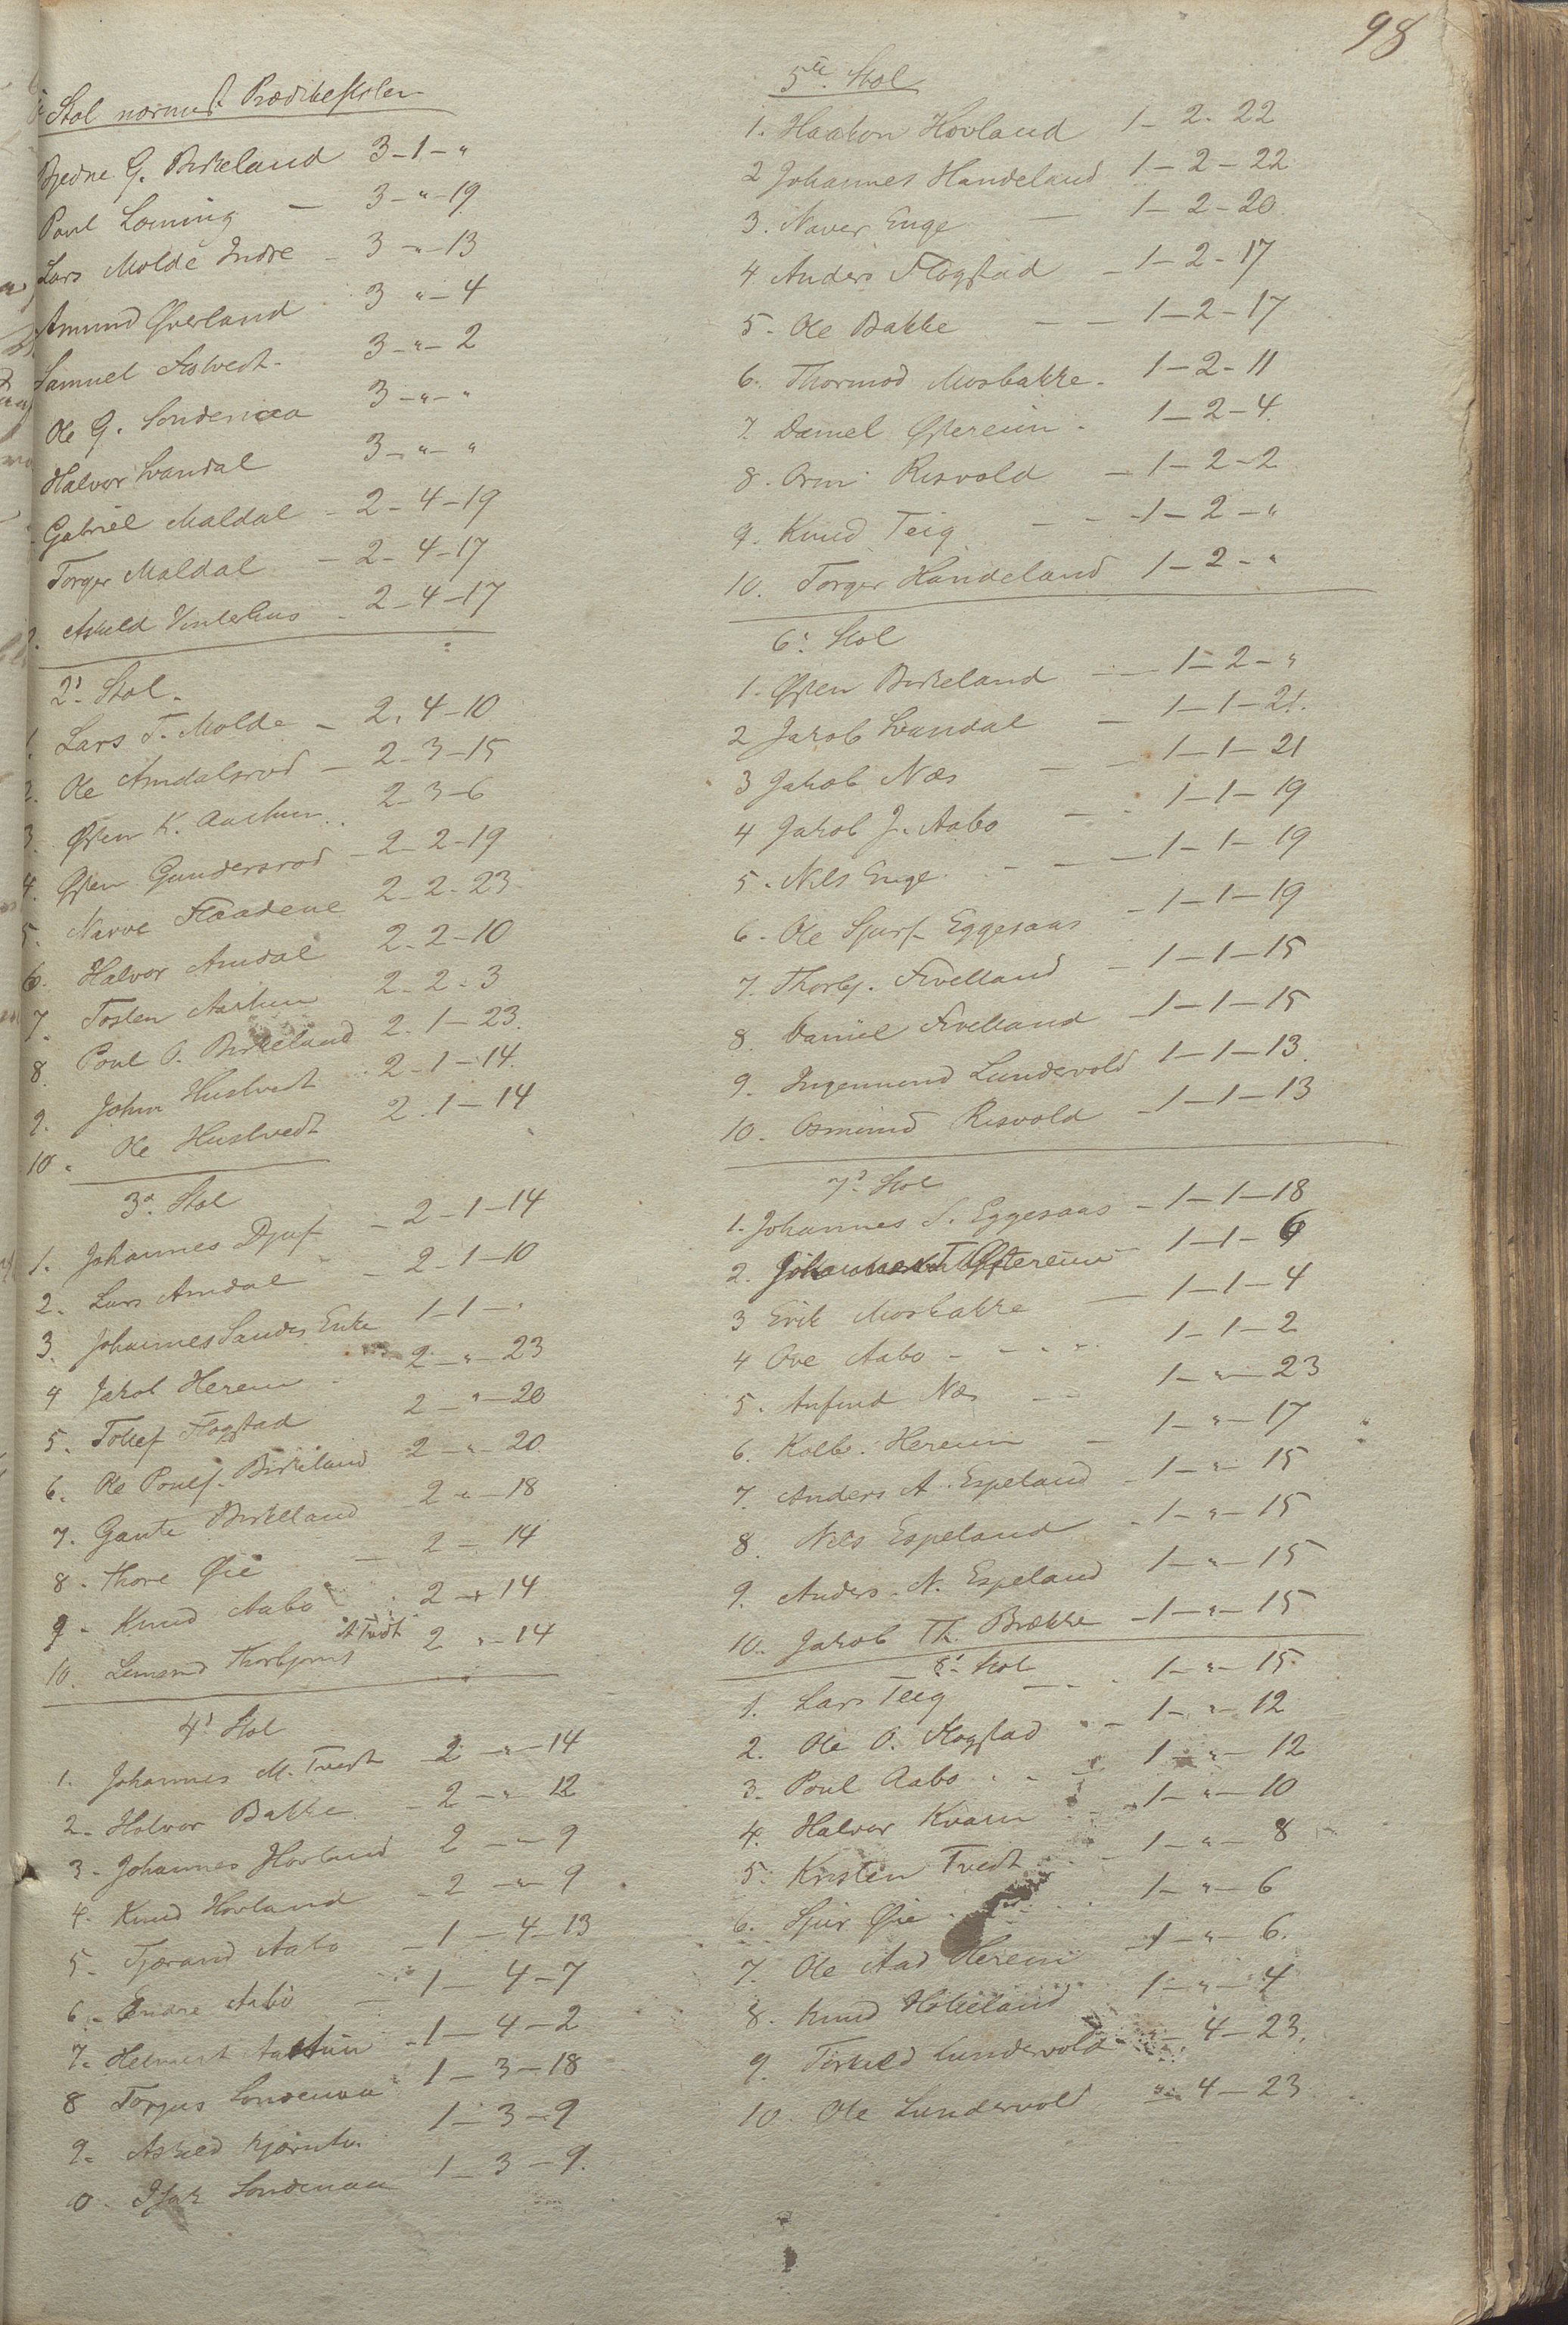 98
Stol nærmest Prædikestolen
Bjedne G. Birkeland 3-1-"
Poul Løining - 3-"-19
Lars Molde Indre - 3-"-13
Amund Qverland 3 "-4
Samuel 3-"-2
Ole G. Søndenaa 3-"-"
Halvor Svandal 3-"-"
Gabriel Maldal - 2-4-19
Torger Maldal - 2-4-17
Askild Vinterhus - 2-4-17
2' Stol.
1. Lars T. Molde - 2. 4-10
2. Ole Amdalsrød - 2-3-15
3. Østen K. Aarthun 2-3-6
4. Østen Gundersrød - 2-2-19
5. Narve Flaadene 2-2-23
6. Halvor Amdal 2-2-10
7. Tosten Aarthun 2-2-3
8. Poul O. Birkeland 2. 1-23.
9. John Huslvedt 2-1-14.
10. Ole Huslvedt 2. 1-14
3' Stol
1. Johannes Djuf - 2-1-14
2. Lars Amdal - 2-1-10
3. Johannes Sandes Enke 1-1-"
4 Jakob Hereim - 2-"-23
5. Tollef Flogstad 2-"-20
6. Ole Poulf. Birkeland 2-"-20
7. Gaute Birkeland 2 "-18
8. Thore Øie - 2 - 14
9. Knud Aabø 2 - 14
10. Thorbjørns Tvedt 2 "-14
4' Stol
1. Johannes M. Tvedt 2 "-14
2. Halvor Bakke - 2 -"- 12
3. Johannes Hovland 2 -"- 9
4. Knud Hovland - 2 -"- 9
5. Tjærand Aabø - 1 - 4-13
6. Endre Aabø - 1 - 4-7
7. Aarthun - 1 - 4-2
8 Torjus Søndenaa 1 - 3-18
9. Askild 1-3-9
0. Isak Søndenaa 1-3-9.
5te Stol
1. Haakon Hovland 1-2-22
2 Johannes Handeland 1-2-22
3. Naver Enge - 1-2-20.
4 Anders Flogstad - 1-2-17
5. Ole Bakke - - 1-2-17
6. Thormod Mosbakke. 1-2-11
7. Daniel Østereim. 1-2-4.
8. Orm Risvold - 1-2-2
9. Knud Teig - - 1-2-"
10. Torger Handeland 1-2-"
6' Stol
1. Østen Birkeland - 1-2-"
2 Jakob Svandal - 1-1-21.
3 Jakob Næs - - 1-1-21
4 Jakob J. Aabø - - 1-1-19
5. Nils Enge - - - 1-1-19
6. Ole Sjurf. Eggesaas - 1-1-19
7. Thorbj. Fivelland - 1-1-15
8. Daniel Fivelland - 1-1-15
9. Ingemund Lundevold 1-1-13.
10. Osmund Risvold - 1-1-13
7' Stol
1. Johannes S. Eggesaas - 1-1-18
2. Johannes T Østereim - 1-1-6
3 Erik Mosbakke - 1-1-4
4 Ove Aabø - - - 1-1-2
5. Anfind Næs - - 1-"-23
6. Kolb. Hereim - 1-"-17
7. Anders A. Espeland - 1-"-15
8. Nils Espeland - 1-"-15
9. Anders N. Espeland 1-"-15
10. Jakob Th. Brække - 1-"-15
8' Stol
1. Lars Teig - - 1-"-15.
2. Ole O. Flogstad - 1-"-12
3. Poul Aabø - - 1-"-12
4. Halvor Kvam - - 1-"-10
5. Kristen Tvedt - - 1-"-8
6. Sjur Øie - . . 1-"-6
7. Ole Aad Hereim - 1-"-6.
8. Knud 1-"-4
9. Torkild Lundevold "-4-23.
10. Ole Lundevold "-4-23